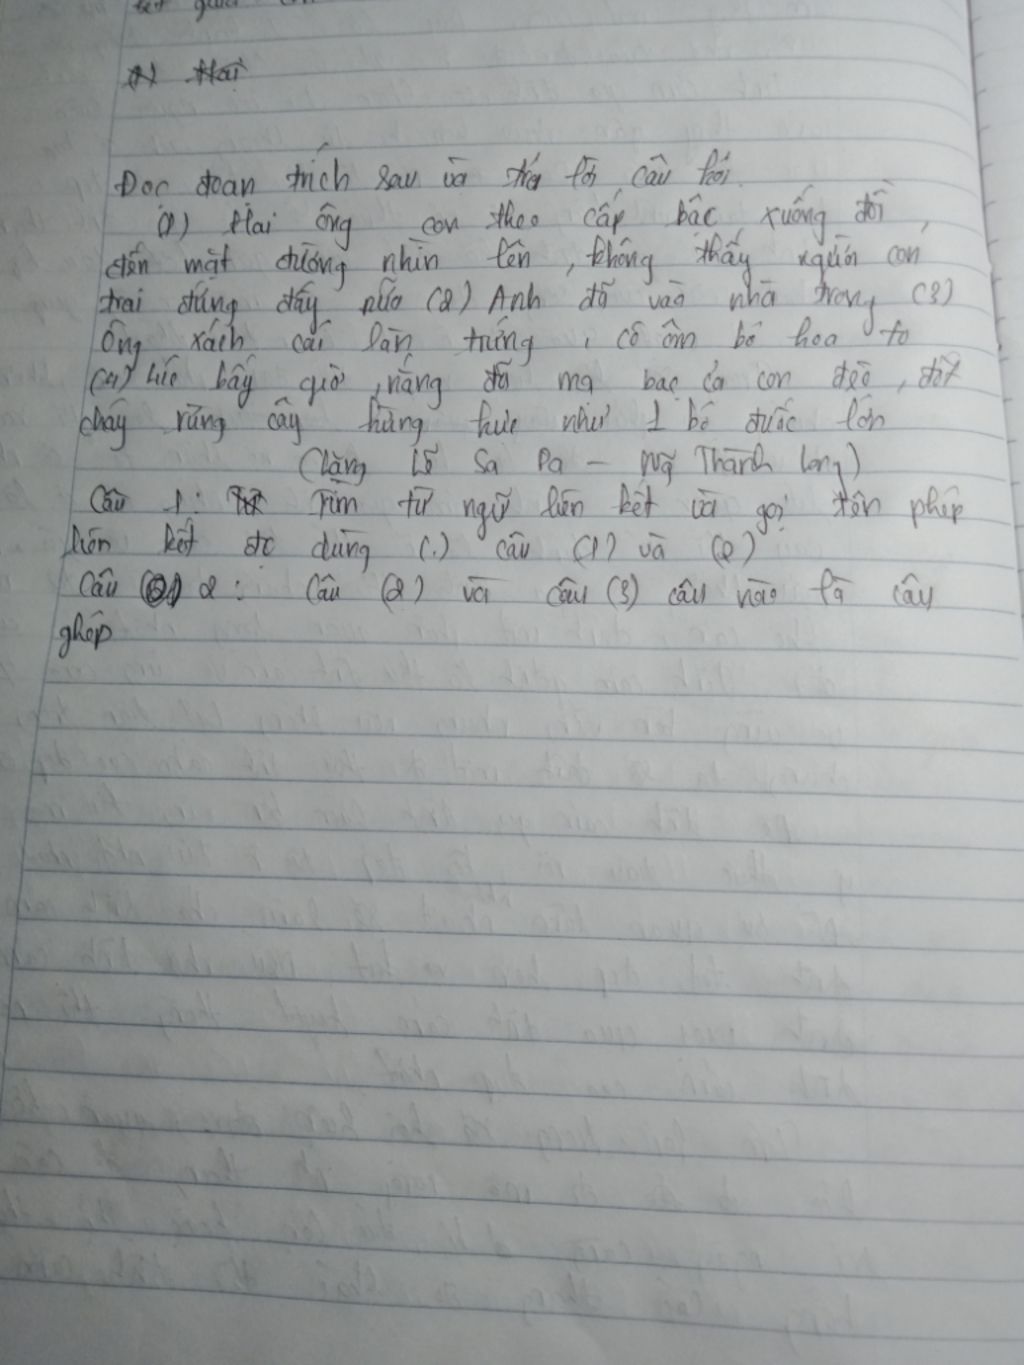 Đọc đoạn trích sau và trả lời câu hỏi.
(1) Hai ông con theo cấp bậc xuống đồi,
đến mặt đường nhìn lên, không thấy người con
trai đứng đấy nữa (2) Anh đã vào nhà trong (3)
Ông xách cái làn trứng, cô ôm bó hoa to
(4) Lúc bấy giờ, nắng đã mạ bạc cả con đèo, đốt
cháy rừng cây hừng hực như 1 bó đuốc lớn
(Lặng Lẽ Sa Pa - Ng Thành Long)
Câu 1: Tìm từ ngữ liên kết và gọi tên phép
liên kết đc dùng (.) câu (1) và (2)
Câu 2: Câu (2) và câu (3) câu nào là câu
ghép